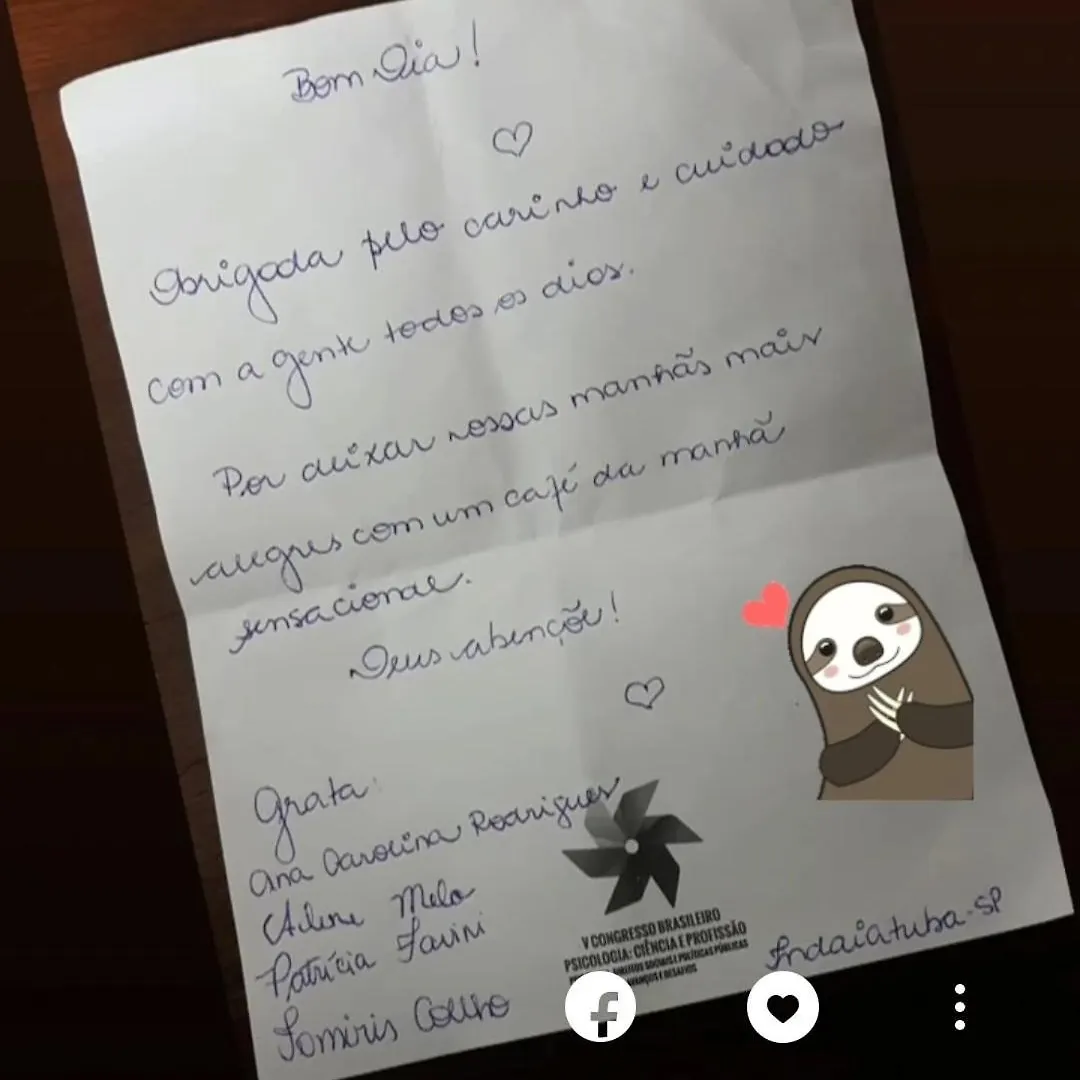 Bom Dia!
Obrigada pelo carinho e cuidado
com a gente todos os dias.
Por deixar nossas manhãs mais
alegres com um café da manhã
sensacional.
Deus abençõe!
Grata:
Ana Carolina Rodrigues
Patrícia Favini
Coelho
V CONGRESSO BRASILEIRO
PSICOLOGIA: CIÊNCIA E PROFISSÃO
DIREITOS SOCIAIS E POLÍTICAS PÚBLICAS
AVANÇOS E DESAFIOS
Indaiatuba-SP